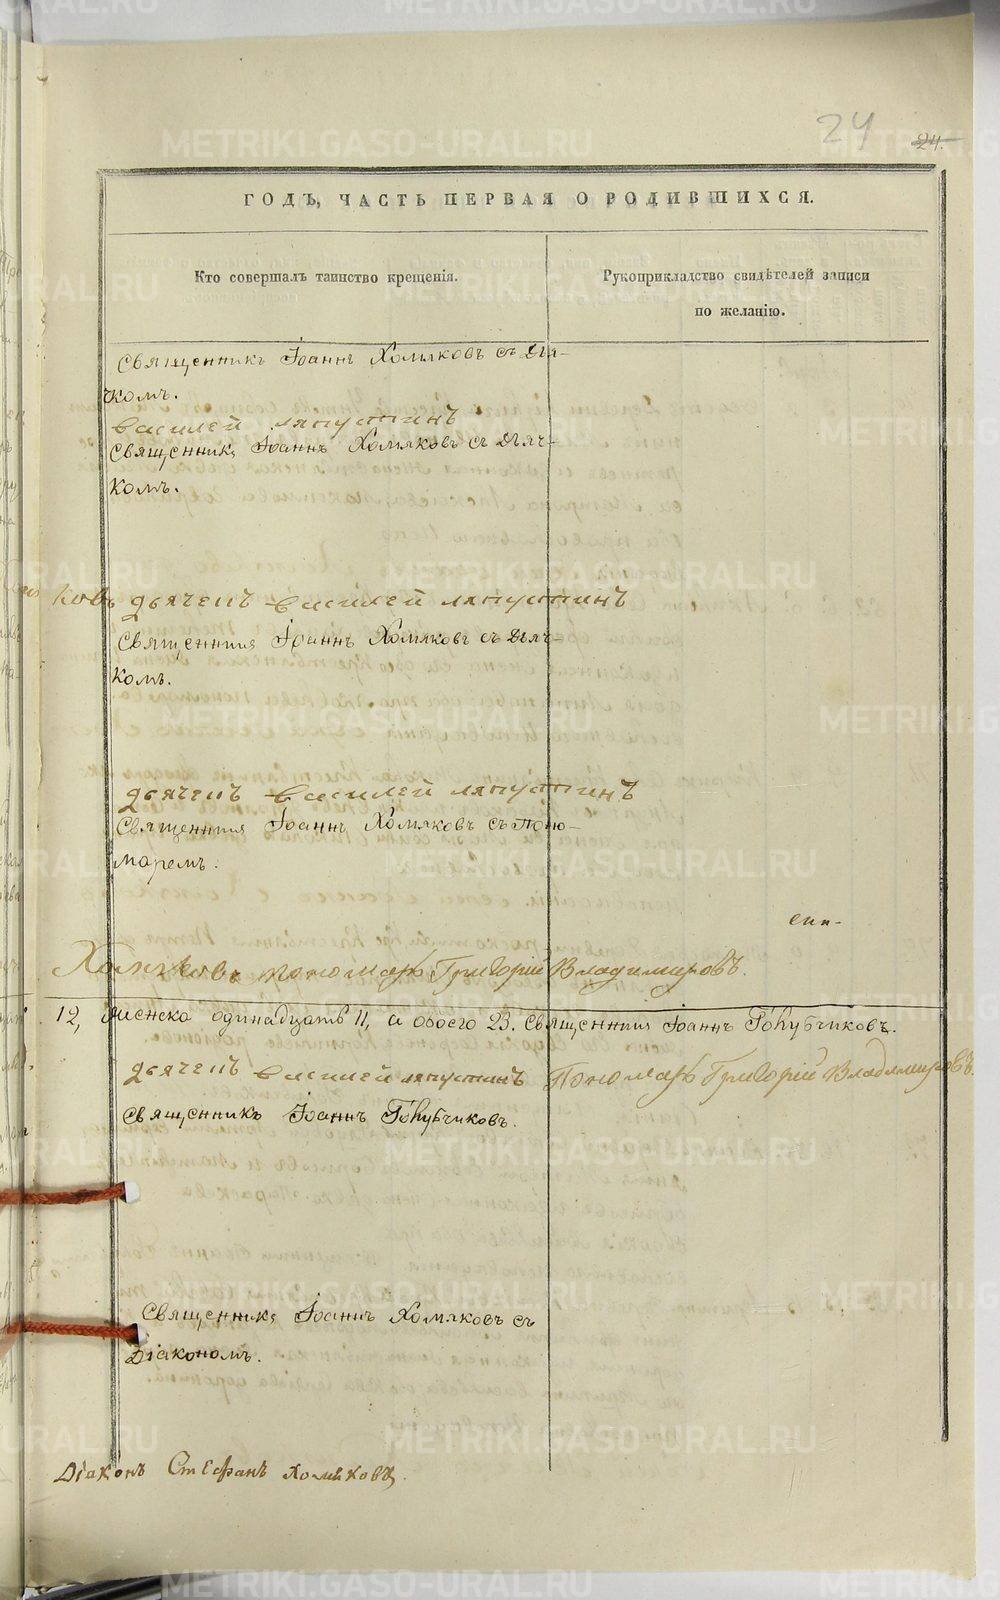 24
24.
ГОДЪ, ЧАСТЬ ПЕРВАЯ О РОДИВШИХСЯ.
Кто совершалъ таинство крещенія.
Рукоприкладство свидѣтелей записи
по желанію.
Священникъ Іоаннъ Хомяковъ съ Дья-
чкомъ.
Василей Ляпустинъ
Священникъ Іоаннъ Хомяковъ съ Дьяч-
комъ.
ковъ дьячепъ Василей Ляпустинъ
Священникъ Іоаннъ Хомяковъ съ Дьяч-
комъ.
дьячепъ Василей Ляпустинъ
Священникъ Іоаннъ Хомяковъ съ Поно-
маремъ.
Хомяковъ Пономарь Григорій Владимировъ.
12, Женска одинадцать 11, а обоего 23. Священникъ Іоаннъ Голубчиковъ.
дьячепъ Василей Ляпустинъ Пономарь Григорій Владимировъ
Священникъ Іоаннъ Голубчиковъ.
Священникъ Іоаннъ Хомяковъ съ
Діакономъ.
Діаконъ Стефанъ Хомяковъ.
METRIKI.GASO-URAL.RU